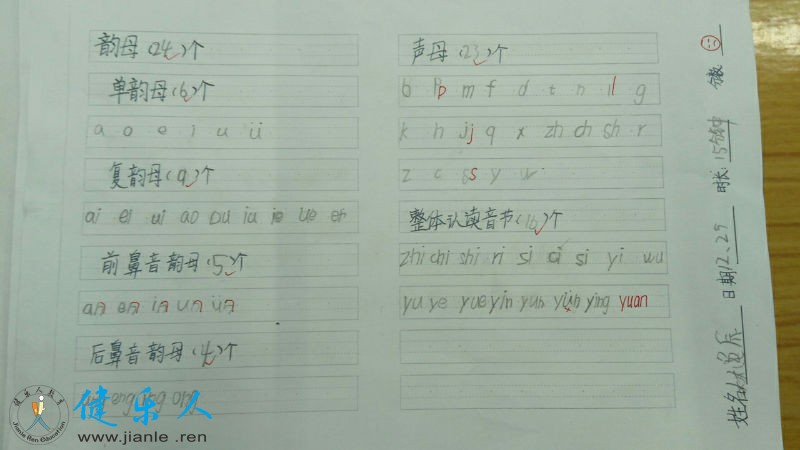 韵母(24)个
单韵母(6)个
a o e i u ü
复韵母(9)个
ai ei ui ao ou iu ie üe er
前鼻音韵母(5)个
an en in un ün
后鼻音韵母(4)个
eng ing ong
声母(23)个
b p m f d t n l g
k h j q x zh ch sh r
z c s y w
整体认读音节(16)个
zhi chi shi ri si ci si yi wu
yu ye yue yin yun yün ying yuan
姓名
日期12、29
时长:15分钟
分数
健乐人教育
Jianle Ren Education
健乐人
www.jianle .ren